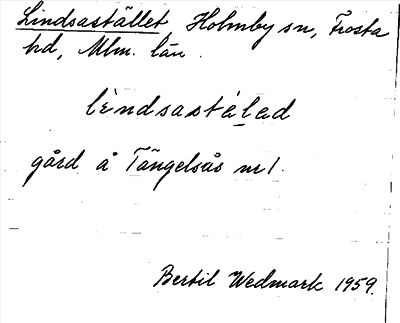 Lindsastället Holmby sn, Frosta
hd, Mlm. län.
lèndsastá̀lad
gård å Tängelsås nr 1.
Bertil Wedmark 1959.